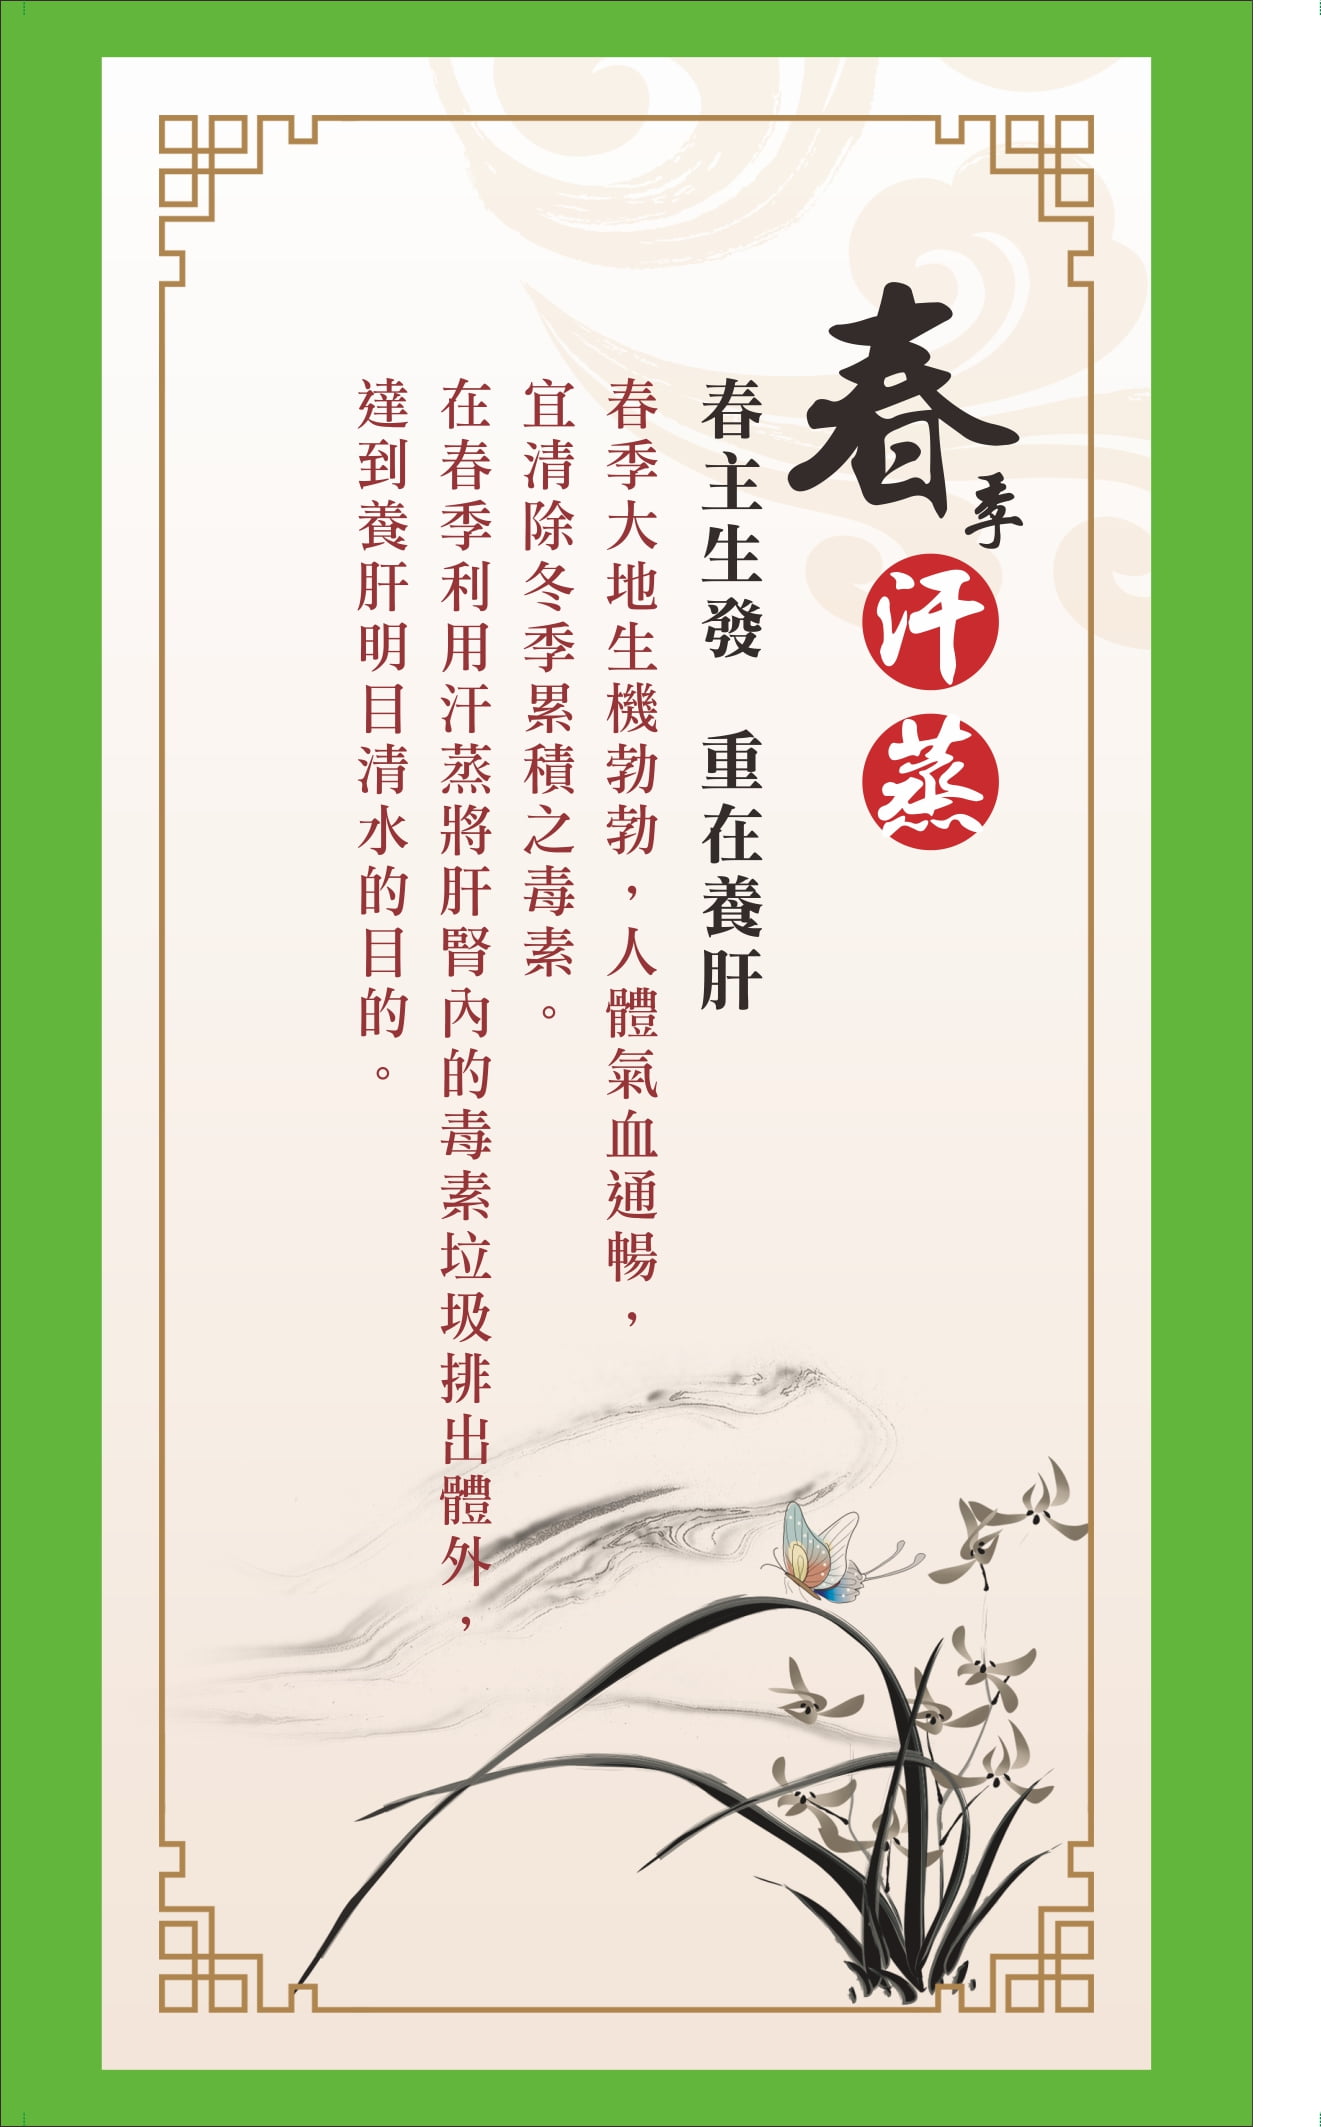 春季
汗蒸
春主生發　重在養肝
春季大地生機勃勃，人體氣血通暢，
宜清除冬季累積之毒素。
在春季利用汗蒸將肝腎內的毒素垃圾排出體外，
達到養肝明目清水的目的。